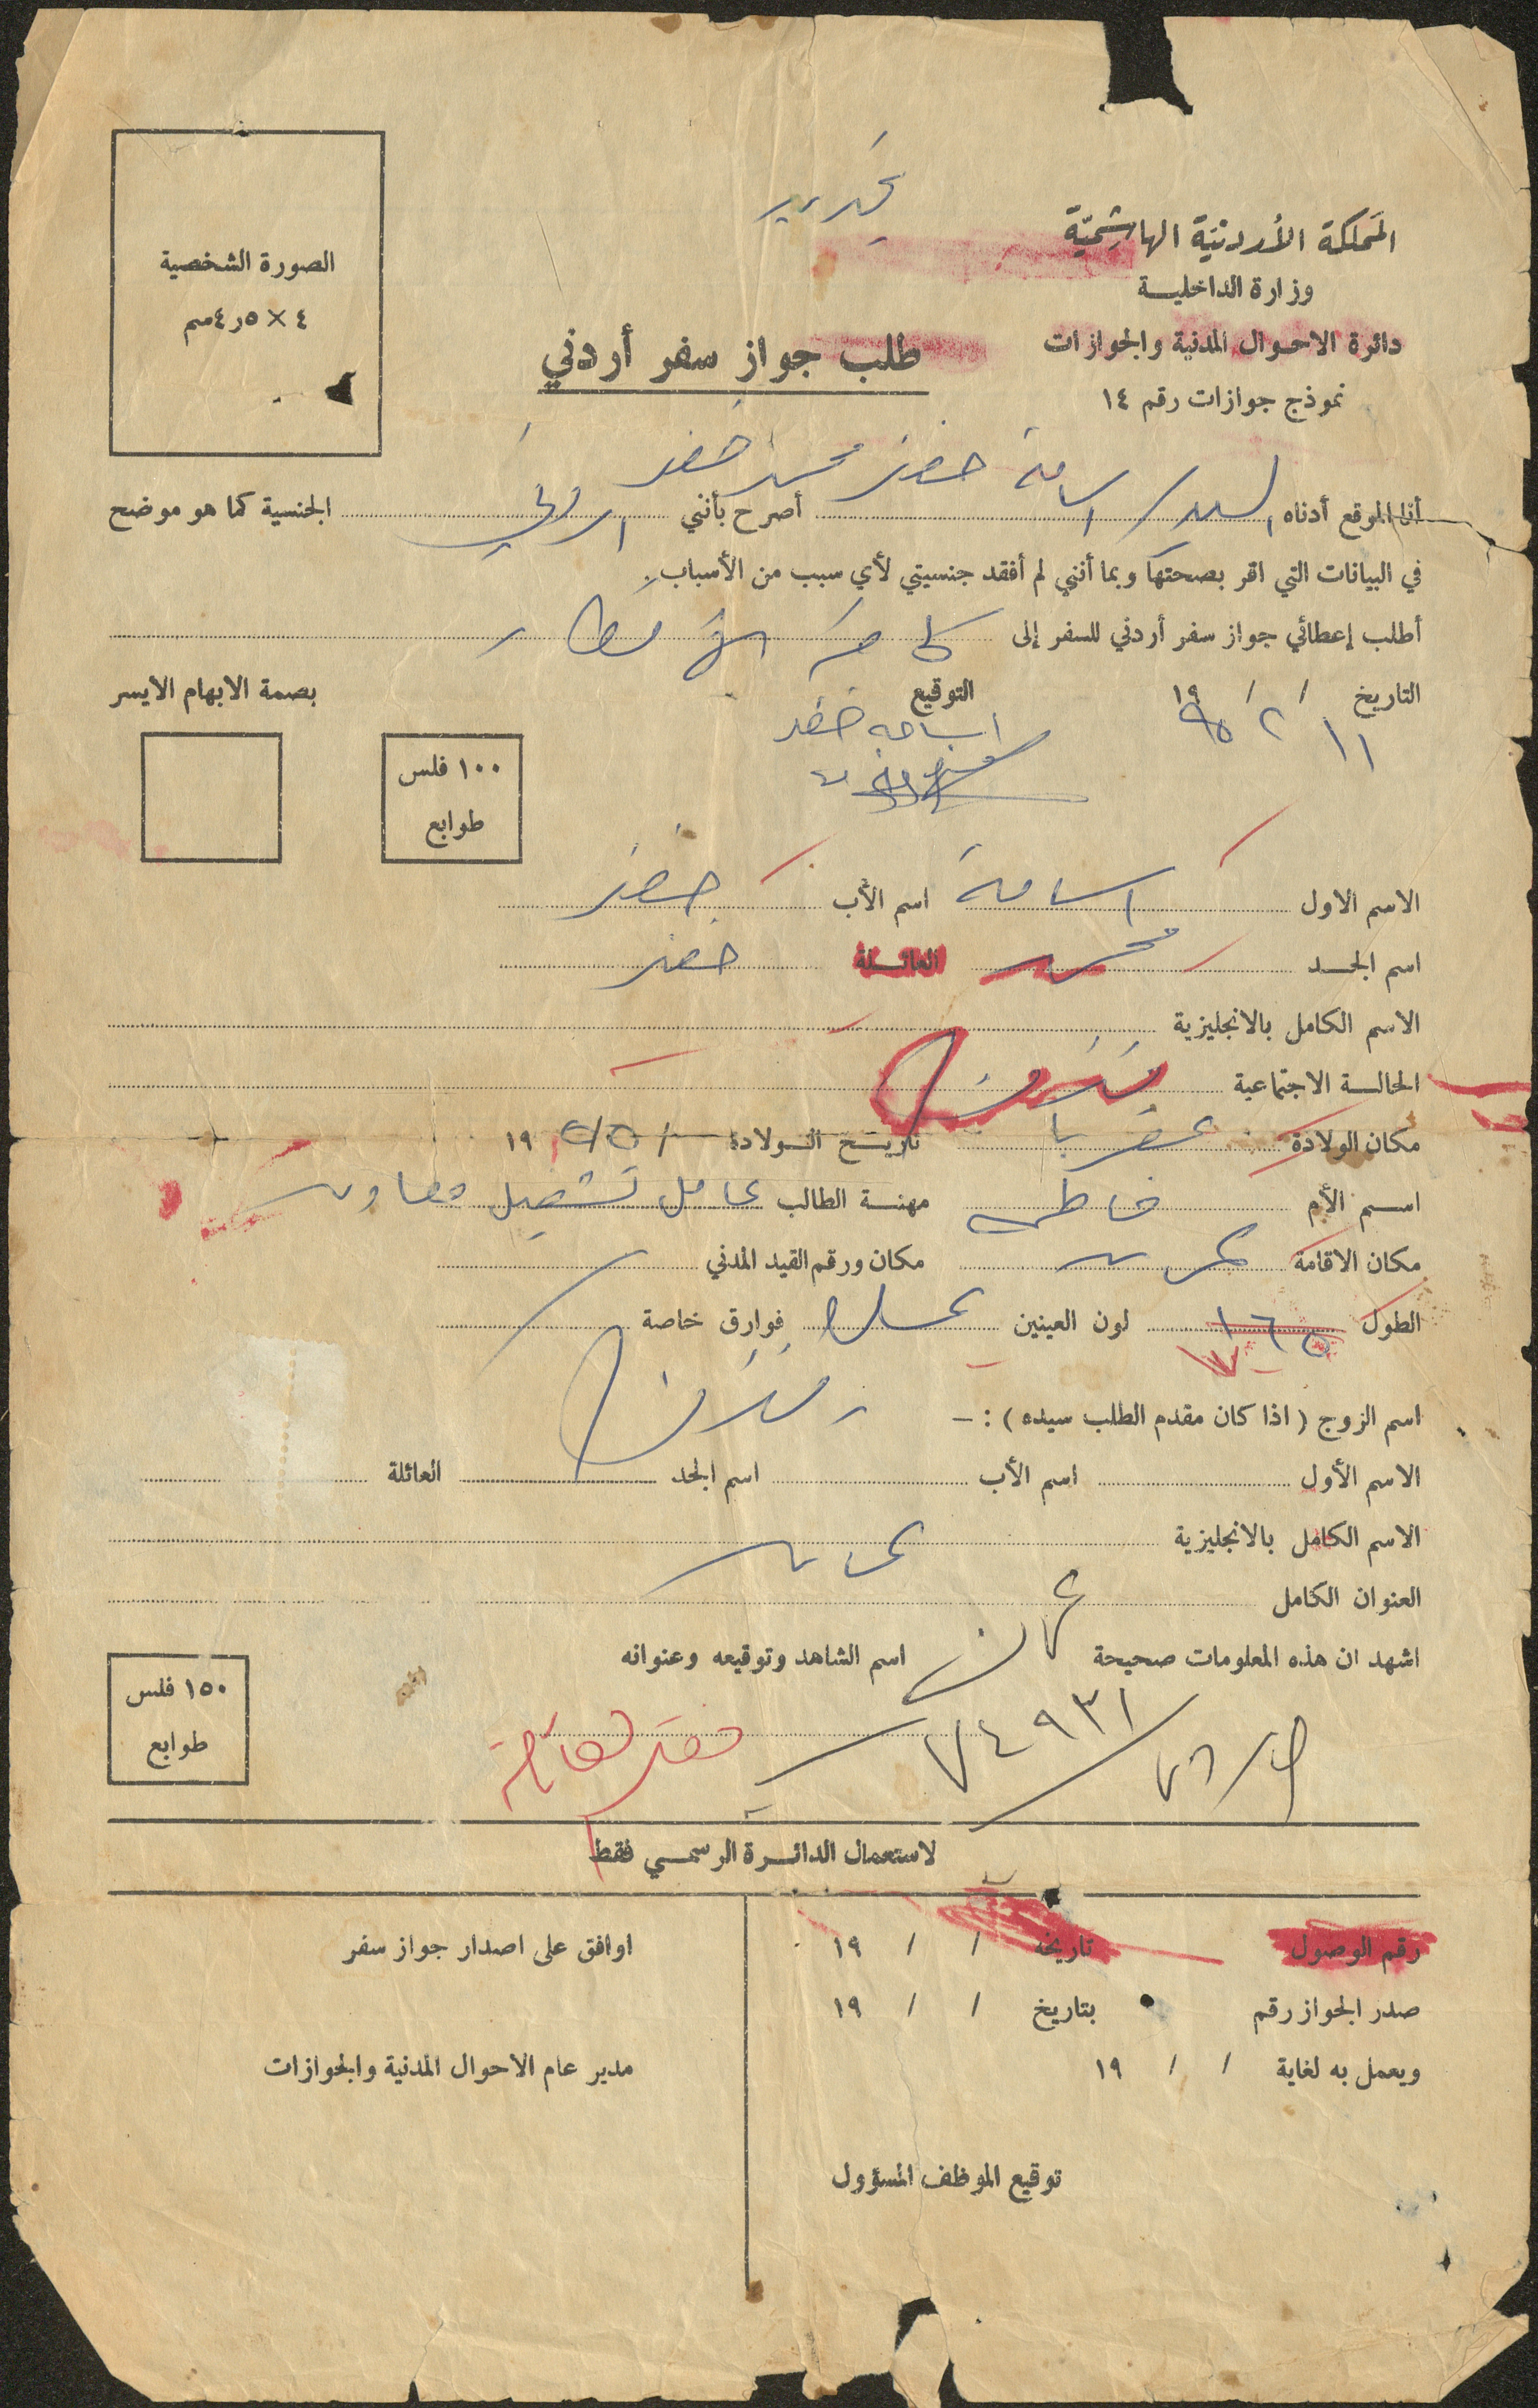 تجديد
المملكة الأردنية الهاشمية
وزارة الداخلية
دائرة الاحوال المدنية والجوازات
نموذج جوازات رقم ١٤
الصورة الشخصية
٤ × ٥ر٤سم
طلب جواز سفر أردني
أنا الموقع أدناه السيد / اسامة خضر محمد خضر أصرح بأنني اردني الجنسية كما هو موضح
في البيانات التي اقر بصحتها وبما أنني لم أفقد جنسيتي لأي سبب من الأسباب.
أطلب إعطائي جواز سفر أردني للسفر إلى كافة الأقطار
التاريخ ١١ / ٢ / ١٩ ٩٥
التوقيع
اسامه خضر
بصمة الابهام الايسر
١٠٠ فلس
طوابع
الاسم الاول اسامة اسم الأب خضر
اسم الجد محمد العائلة خضر
الاسم الكامل بالانجليزية
الحالة الاجتماعية
مكان الولادة عقربا تاريخ الولادة / ١٩
اسم الأم فاطمه مهنة الطالب عامل
مكان الاقامة مكان ورقم القيد المدني
الطول ١٦٥ لون العينين عسلي فوارق خاصة
١٧٠
اسم الزوج ( اذا كان مقدم الطلب سيده ) : –
الاسم الأول اسم الأب اسم الجد العائلة
الاسم الكامل بالانجليزية
العنوان الكامل
اشهد ان هذه المعلومات صحيحة عمان اسم الشاهد وتوقيعه وعنوانه
٧٤٩٣١
١٥٠ فلس
طوابع
لاستعمال الدائرة الرسمي فقط
رقم الوصول تاريخه / / ١٩
صدر الجواز رقم بتاريخ / / ١٩
ويعمل به لغاية / / ١٩
توقيع الموظف المسؤول
اوافق على اصدار جواز سفر
مدير عام الاحوال المدنية والجوازات